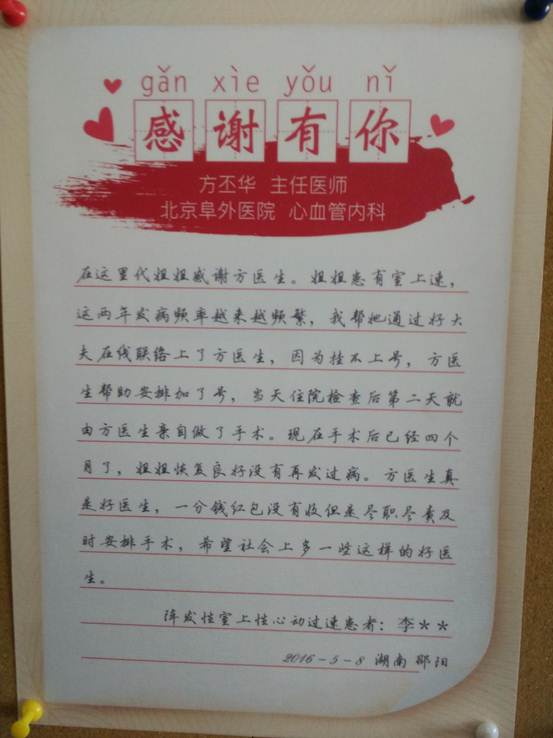 gǎn xìe yǒu nǐ
感谢有你
方丕华 主任医师
北京阜外医院 心血管内科
在这里代姐姐感谢方医生。姐姐患有室上速，
这两年发病频率越来越频繁，我帮她通过好大
夫在线联络上了方医生，因为挂不上号，方医
生帮助安排加了号，当天住院检查后第二天就
由方医生亲自做了手术。现在手术后已经四个
月了，姐姐恢复良好没有再发过病。方医生真
是好医生，一分钱红包没有收但是尽职尽责及
时安排手术，希望社会上多一些这样的好医
生。
阵发性室上性心动过速患者：李**
2016-5-8 湖南 邵阳